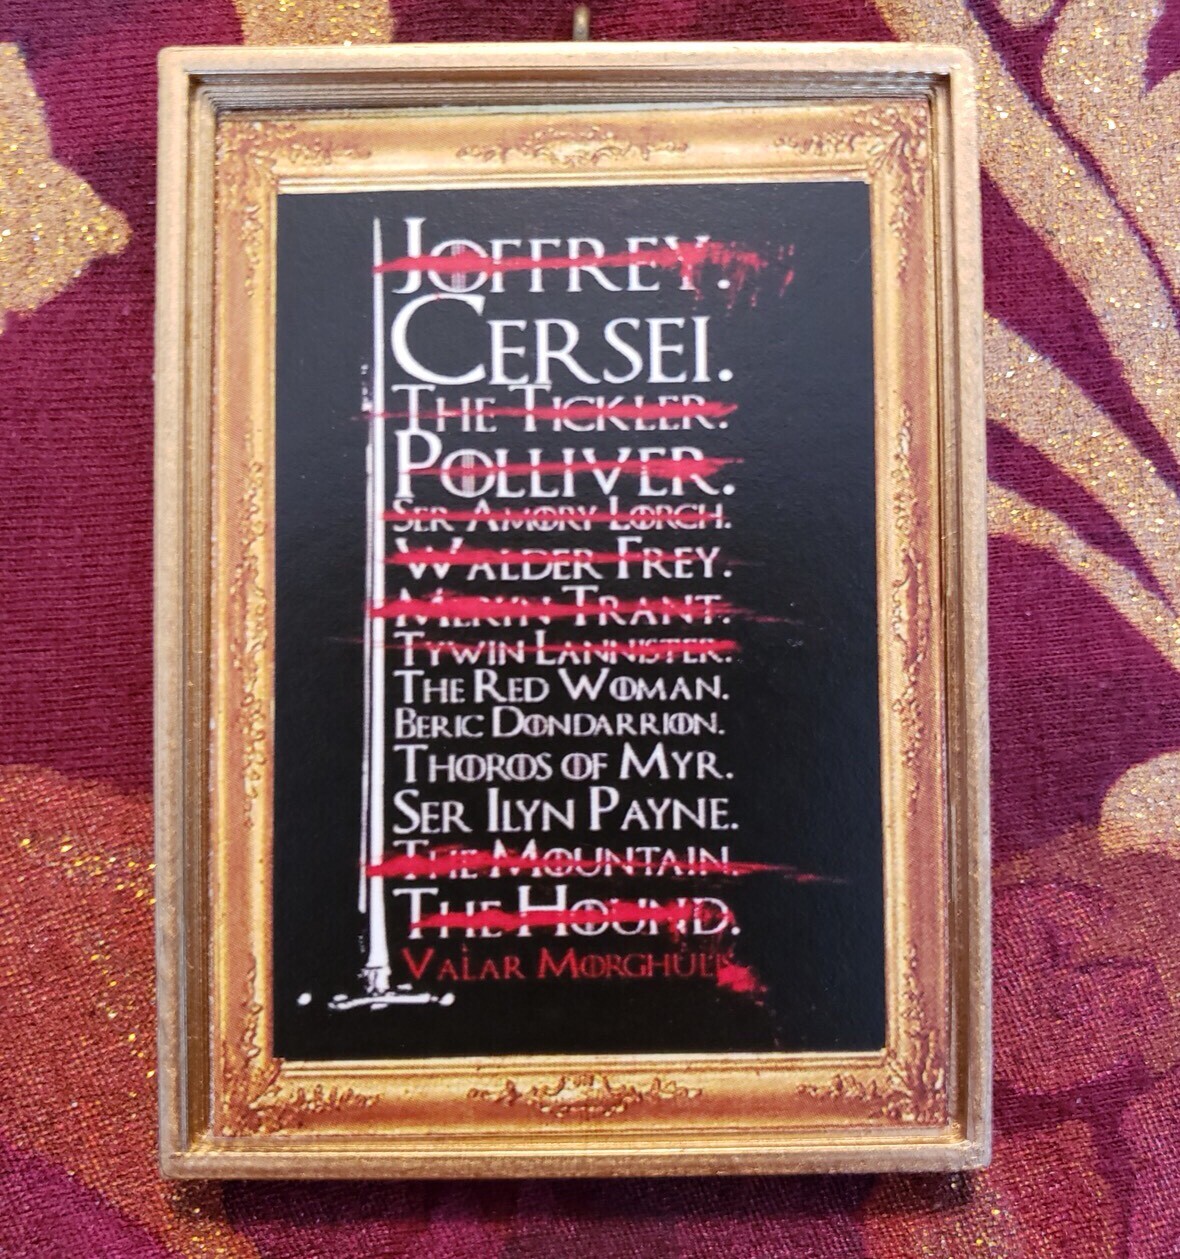 Joffrey.
Cersei.
The Tickler.
Polliver.
Ser Amory Lorch.
Walder Frey.
Meryn Trant.
Tywin Lannister.
The Red Woman.
Beric Dondarrion.
Thoros of Myr.
Ser Ilyn Payne.
The Mountain.
The Hound.
Valar Morghulis